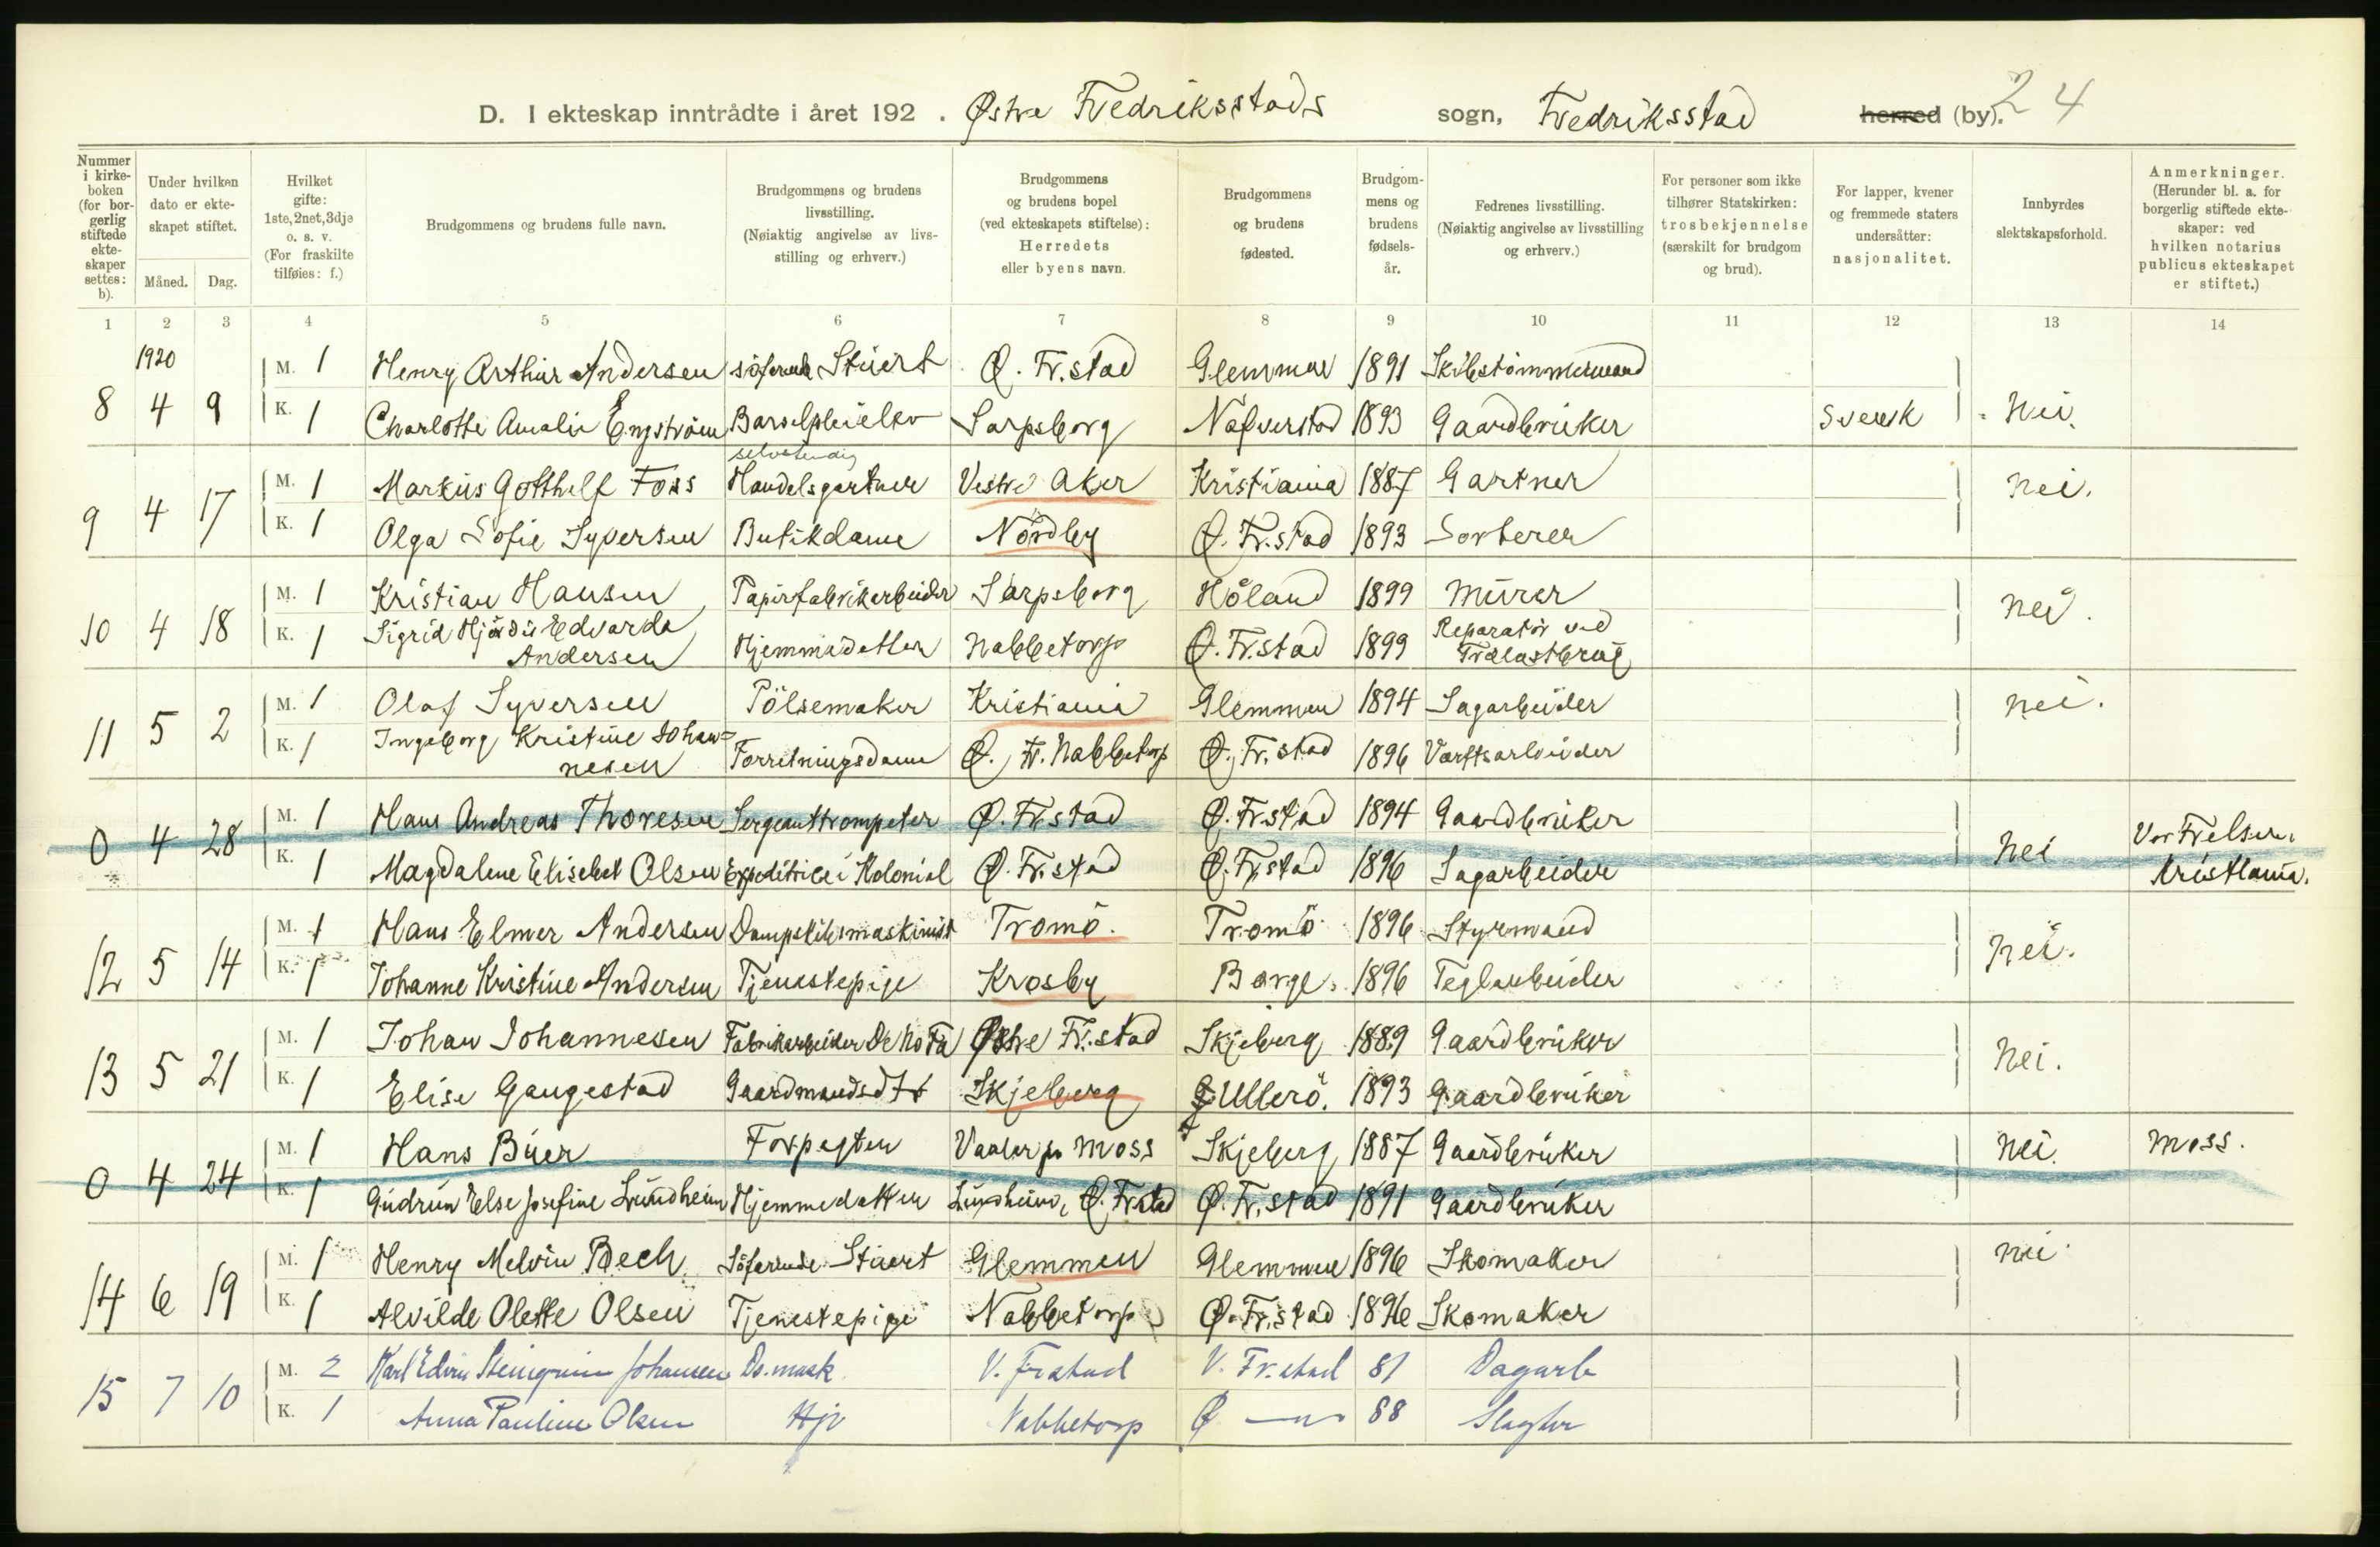 D. I ekteskap inntrådte i året 192 . Østre Fredriksstads sogn, Fredriksstad herred (by). 24
Nummer i kirkeboken (for borgerlig stiftede ekteskaper settes: b).
Under hvilken dato er ekteskapet stiftet.
Måned. Dag.
Hvilket gifte: 1ste, 2net, 3dje o. s. v. (For fraskilte tilføies: f.)
Brudgommens og brudens fulle navn.
Brudgommens og brudens livsstilling. (Nøiaktig angivelse av livsstilling og erhverv.)
Brudgommens og brudens bopel (ved ekteskapets stiftelse): Herredets eller byens navn.
Brudgommens og brudens fødested.
Brudgommens og brudens fødselsår.
Fedrenes livsstilling. (Nøiaktig angivelse av livsstilling og erhverv.)
For personer som ikke tilhører Statskirken: trosbekjennelse (særskilt for brudgom og brud).
For lapper, kvener og fremmede staters undersåtter: nasjonalitet.
Innbyrdes slektskapsforhold.
Anmerkninger. (Herunder bl. a. for borgerlig stiftede ekteskaper: ved hvilken notarius publicus ekteskapet er stiftet.)
1 2 3 4 5 6 7 8 9 10 11 12 13 14
1920
M. 1 Henry Arthur Andersen söfarende Stuert Ø. Fr.stad Glemmen 1891 Skibstömmermand
8 4 9 K. 1 Charlotte Amalie Engström Barselpleierske Sarpsborg Nafverstad 1893 Gaardbruker Svensk Nei.
selvstendig
M. 1 Markus Gotthelf Foss Handelsgartner Vestre Aker Kristiania 1887 Gartner nei.
9 4 17 K. 1 Olga Sofie Syversen Butikdame Nordby Ø. Fr.stad 1893 Sorterer
M. 1 Kristian Hansen Papirfabrikarbeider Sarpsborg Höland 1899 Murer nei.
10 4 18 K. 1 Sigrid Hjördis Edvarda Andersen Hjemmedatter Nabbetorp Ø. Fr.stad 1899 Reparatör ved Trælastbrug
M. 1 Olaf Syversen Pölsemaker Kristiania Glemmen 1894 Sagarbeider nei.
11 5 2 K. 1 Ingeborg Kristine Johannesen Forretningsdame Ø. Fr. Nabbetorp Ø. Fr.stad 1896 Værftsarbeider
M. 1 Hans Andreas Thoresen Sergeanttrompeter Ø. Fr.stad Ø. Fr.stad 1894 Gaardbruker Vor Frelsers
0 4 28 K. 1 Magdalene Elisebet Olsen Expeditrice i Kolonial Ø. Fr.stad Ø. Fr.stad 1896 Sagarbeider nei Kristiania.
M. 1 Hans Elmer Andersen Dampskibsmaskinist Tromö. Tromö 1896 Styrmand nei.
12 5 14 K. 1 Johanne Kristine Andersen Tjenestepige Krosby Borge. 1896 Teglarbeider
M. 1 Johan Johannesen Fabrikarbeider De No Fa Østre Fr.stad Skjeberg 1889 Gaardbruker Nei.
13 5 21 K. 1 Elise Gaugestad Gaardmandsdtr Skjeberg Ullerö. 1893 Gaardbruker
M. 1 Hans Buer Forpagter Vaaler pr Moss Skjeberg 1887 Gaardbruker nei. Moss.
0 4 24 K. 1 Gudrun Else Josefine Lundheim Hjemmedatter Lundheim, Ø. Fr.stad Ø. Fr.stad 1891 Gaardbruker
M. 1 Henry Melvin Bech Söfarende Stuert Glemmen Glemmen 1896 Skomaker nei
14 6 19 K. 1 Alvilde Olette Olsen Tjenestepige Nabbetorp Ø. Fr.stad 1896 Skomaker
M. 2 Karl Edvin Steingrim Johansen Ds. mask. V. Frstad V. Fr.stad 81 Dagarb
15 7 10 K. 1 Anna Pauline Olsen Hje Nabbetorp Ø —"— 88 Slagter